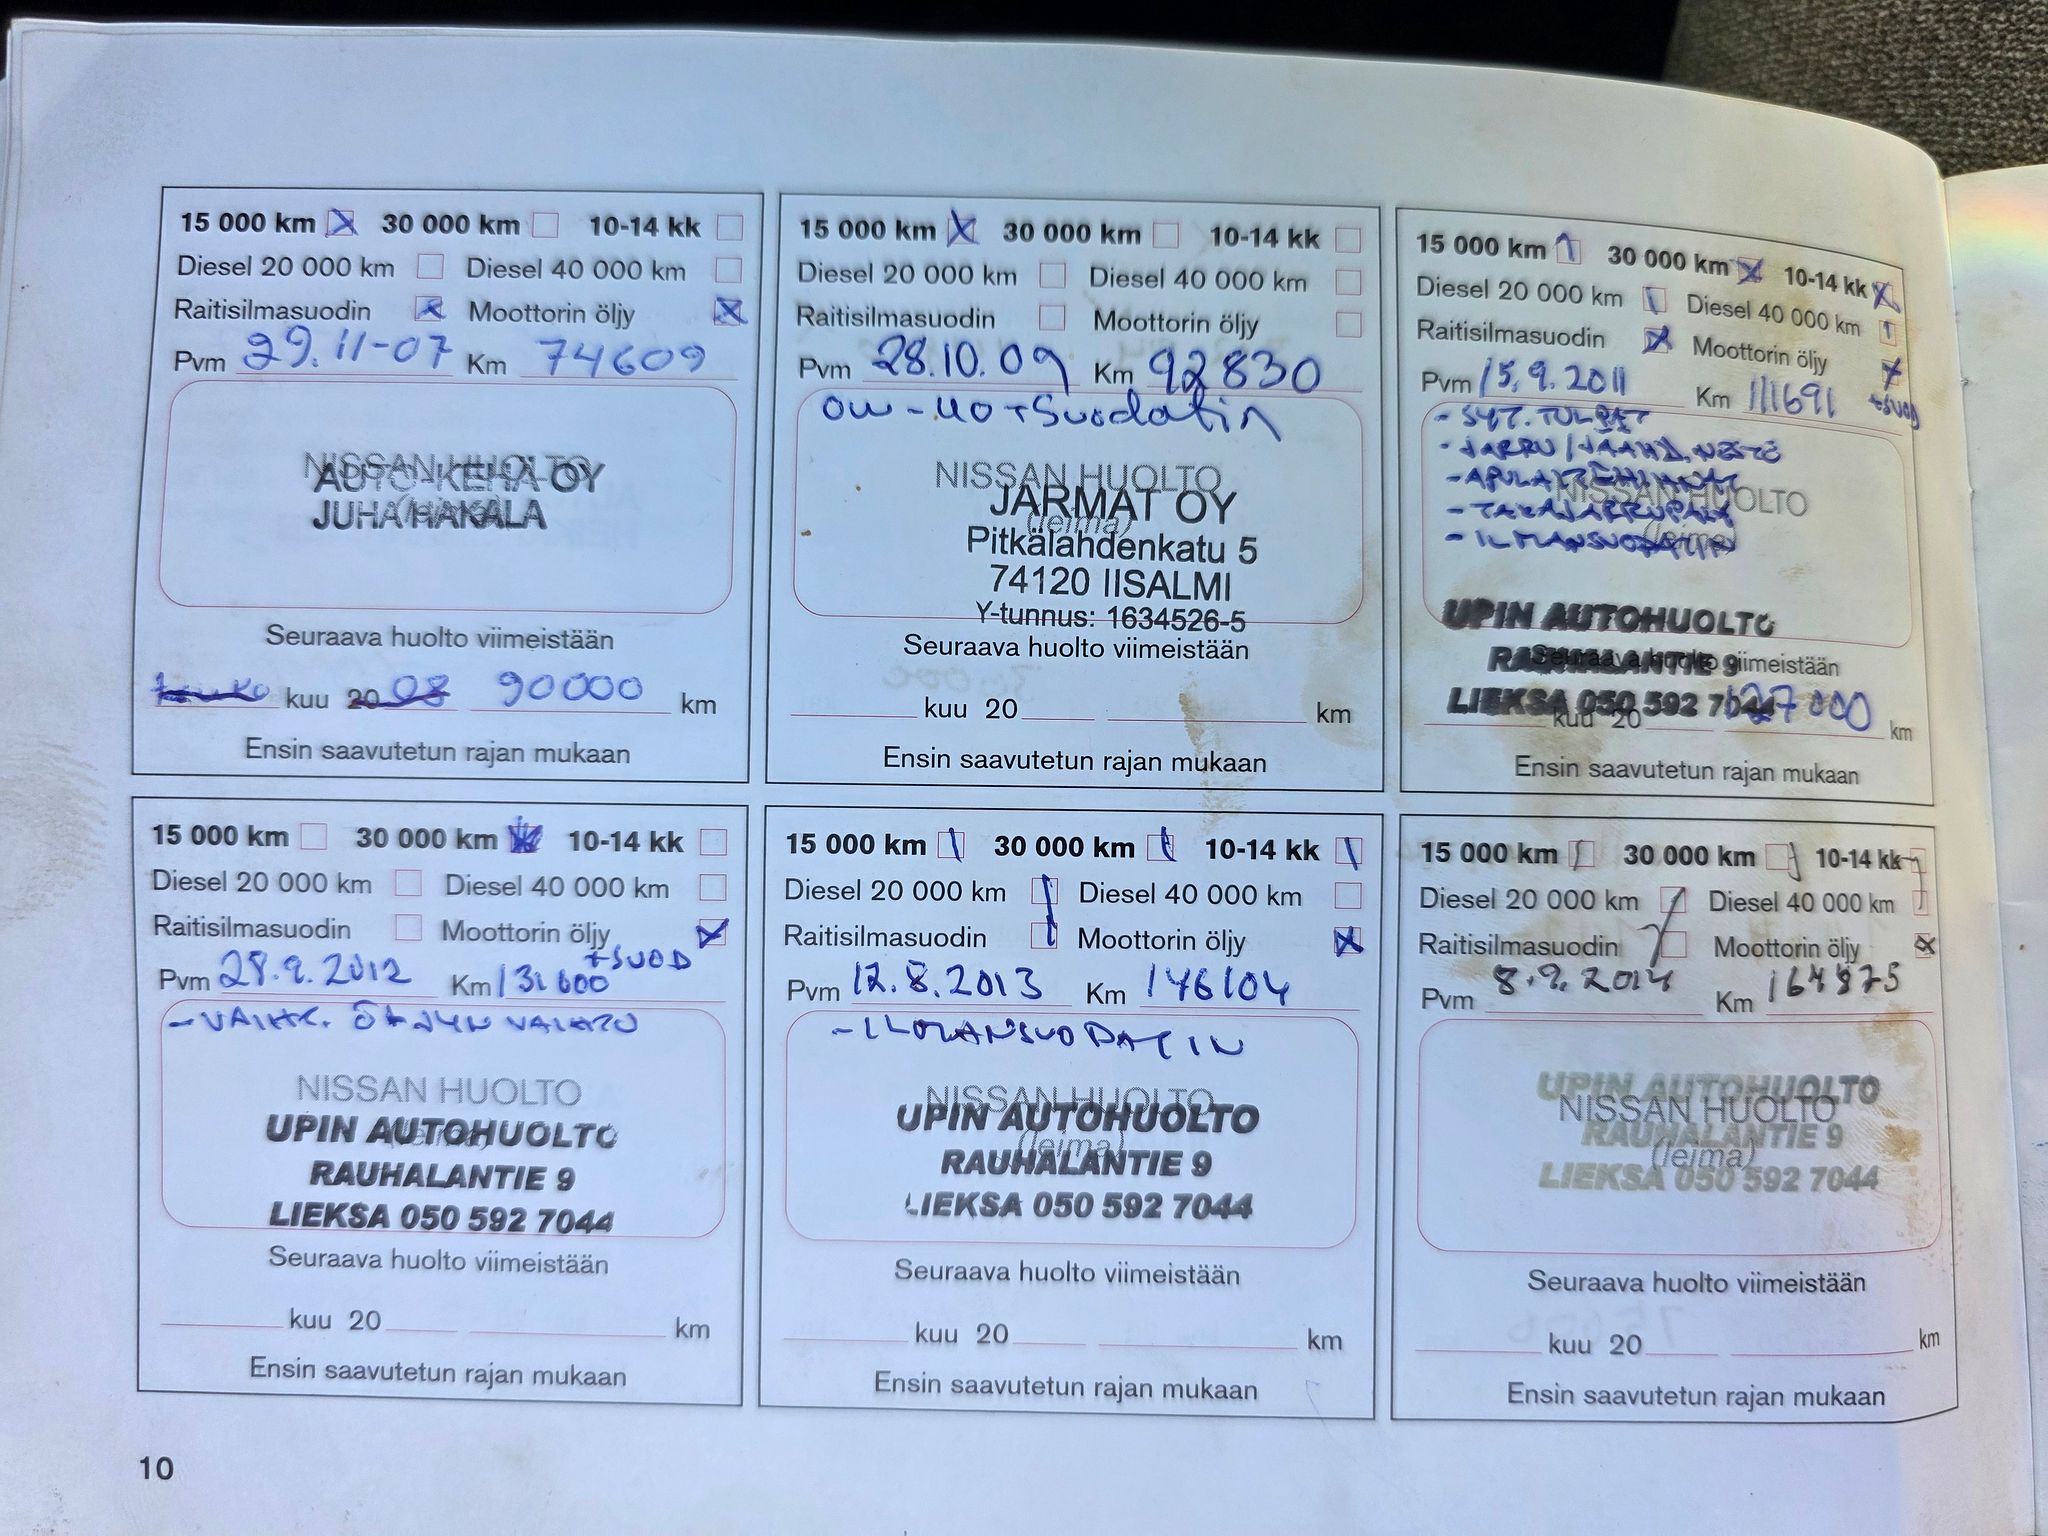 15 000 km 30 000 km 10-14 kk
Diesel 20 000 km Diesel 40 000 km
Raitisilmasuodin Moottorin öljy
Pvm 29.11-07 Km 74609
NISSAN HUOLTO
AUTO-KEHÄ OY
JUHA HAKALA
Seuraava huolto viimeistään
kuu 20 08 90000 km
Ensin saavutetun rajan mukaan
15 000 km 30 000 km 10-14 kk
Diesel 20 000 km Diesel 40 000 km
Raitisilmasuodin Moottorin öljy
Pvm 28.10.09 Km 92830
OW-40 + Suodatin
NISSAN HUOLTO
JARMAT OY
(leima)
Pitkälahdenkatu 5
74120 IISALMI
Y-tunnus: 1634526-5
Seuraava huolto viimeistään
kuu 20 km
Ensin saavutetun rajan mukaan
15 000 km 30 000 km 10-14 kk
Diesel 20 000 km Diesel 40 000 km
Raitisilmasuodin Moottorin öljy
Pvm 15.9.2011 Km 111691 +SUOD
- SYT. TULPAT
- JARRU/JÄÄHD. NESTE
- TAKAJARRUPALAT
- ILMANSUODATIN
NISSAN HUOLTO
(leima)
UPIN AUTOHUOLTO
RAUHALANTIE 9
Seuraava huolto viimeistään
LIEKSA 050 592 7044
kuu 20 127000 km
Ensin saavutetun rajan mukaan
15 000 km 30 000 km 10-14 kk
Diesel 20 000 km Diesel 40 000 km
Raitisilmasuodin Moottorin öljy
+SUOD
Pvm 28.9.2012 Km 131600
- VAIHT. ÖLJYN VAIHTO
NISSAN HUOLTO
UPIN AUTOHUOLTO
(leima)
RAUHALANTIE 9
LIEKSA 050 592 7044
Seuraava huolto viimeistään
kuu 20 km
Ensin saavutetun rajan mukaan
15 000 km 30 000 km 10-14 kk
Diesel 20 000 km Diesel 40 000 km
Raitisilmasuodin Moottorin öljy
Pvm 12.8.2013 Km 146104
- ILMANSUODATIN
NISSAN HUOLTO
UPIN AUTOHUOLTO
(leima)
RAUHALANTIE 9
LIEKSA 050 592 7044
Seuraava huolto viimeistään
kuu 20 km
Ensin saavutetun rajan mukaan
15 000 km 30 000 km 10-14 kk
Diesel 20 000 km Diesel 40 000 km
Raitisilmasuodin Moottorin öljy
Pvm 8.9.2014 Km 164875
UPIN AUTOHUOLTO
NISSAN HUOLTO
RAUHALANTIE 9
(leima)
LIEKSA 050 592 7044
Seuraava huolto viimeistään
kuu 20 km
Ensin saavutetun rajan mukaan
10